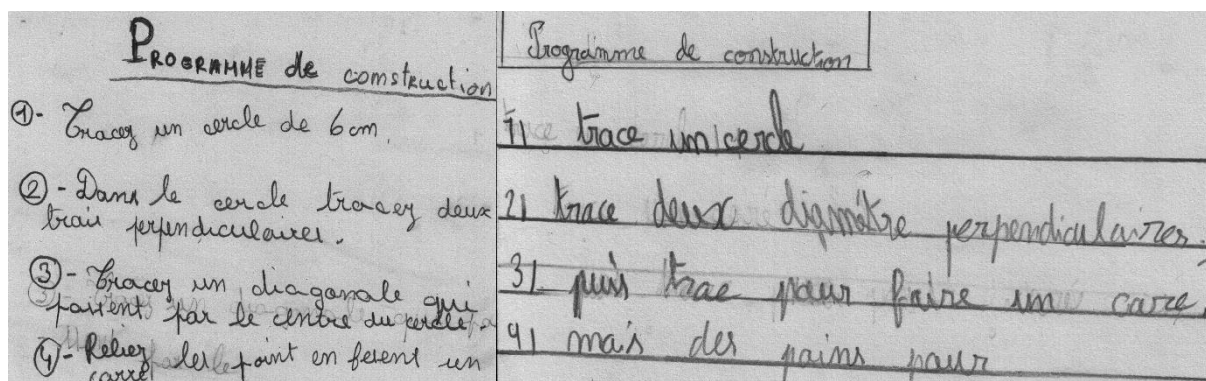 PROGRAMME de comstruction
①- Tracez un cercle de 6cm.
②- Dans le cercle tracez deux
trais perpendiculaires.
③- Tracez un diagonale qui
passent par le centre du cercle.
④- Reliez les point en fesent un
carré
Programme de construction
1) trace un cercle
2) trace deux diamètre perpendiculaires.
3) puis trac pour faire un carre.
4) mais des poins pour